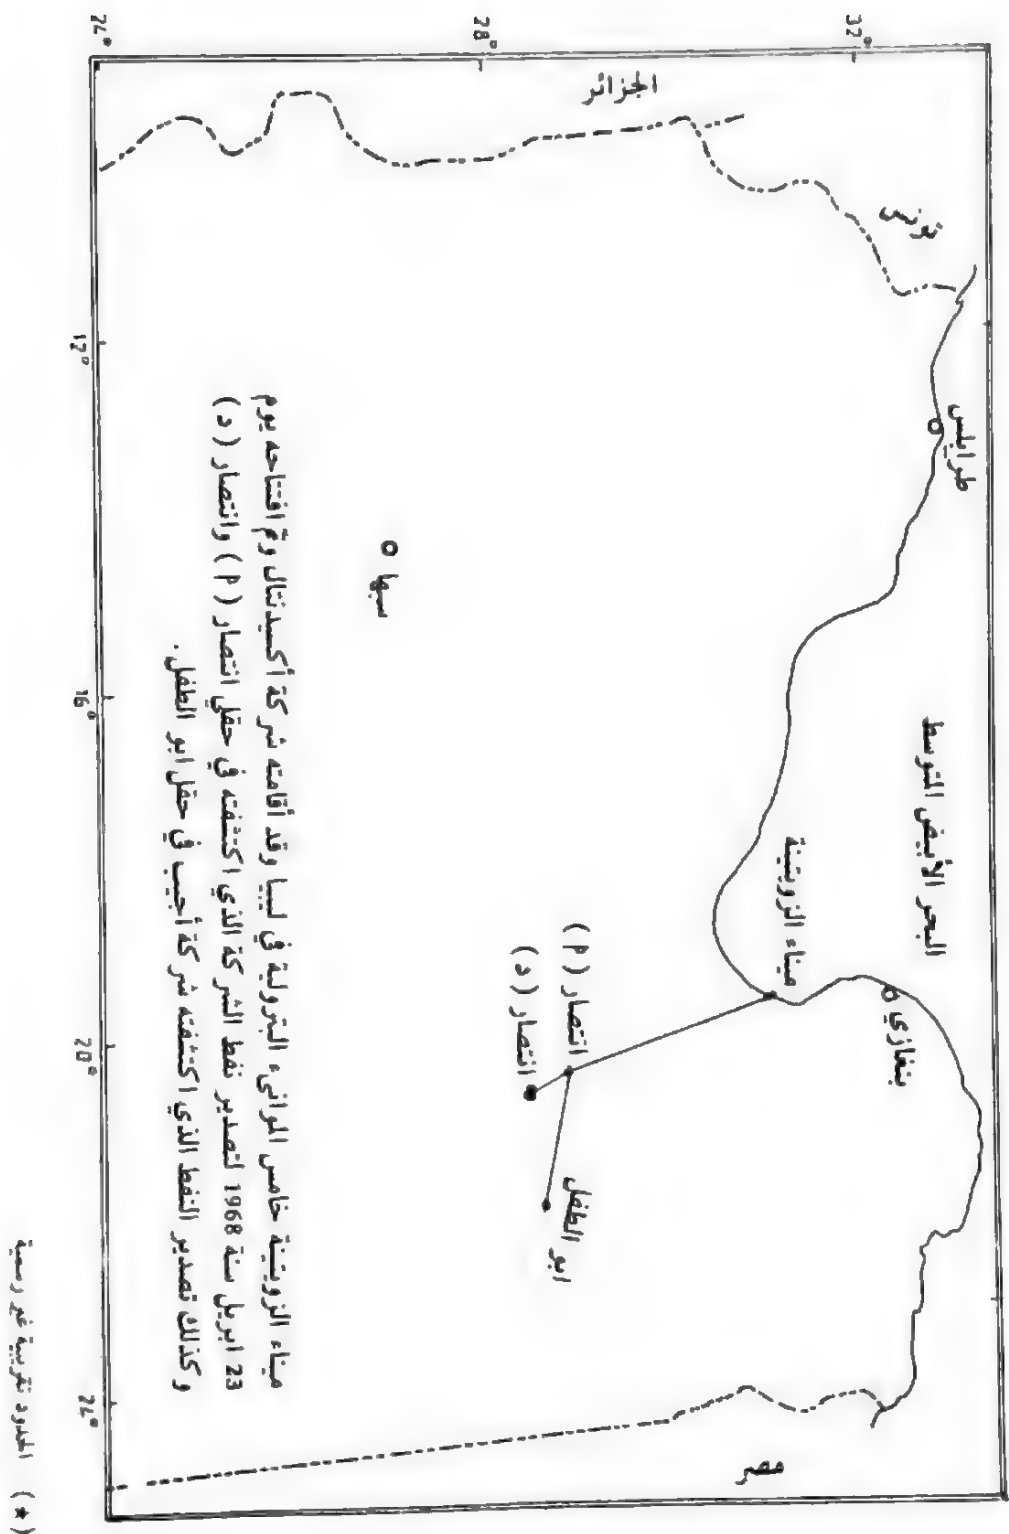 32°
28°
24°
12°
16°
20°
24°
الجزائر
تونس
طرابلس
سبها
البحر الأبيض المتوسط
ميناء الزويتينة
بنغازي
انتصار (P)
انتصار (د)
ابو الطفل
مصر
ميناء الزويتينة خامس الموانىء البترولية في ليبيا وقد أقامته شركة أكسيدنتال وتم افتتاحه يوم
23 ابريل سنة 1968 لتصدير نفط الشركة الذي اكتشفته في حقلي انتصار (P) وانتصار (د)
وكذلك تصدير النفط الذي اكتشفته شركة أجيب في حقل ابو الطفل.
(*) الحدود تقريبية غير رسمية